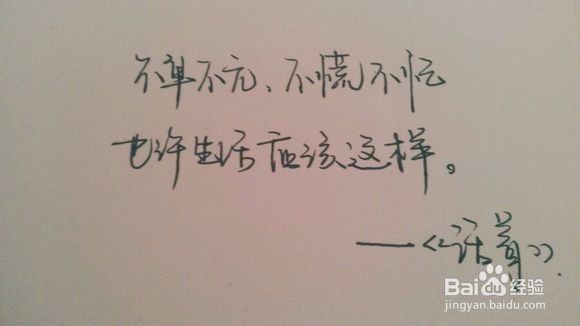 不卑不亢、不慌不忙
也许生活应该这样。
——《活着》.
Baidu经验
jingyan.baidu.com